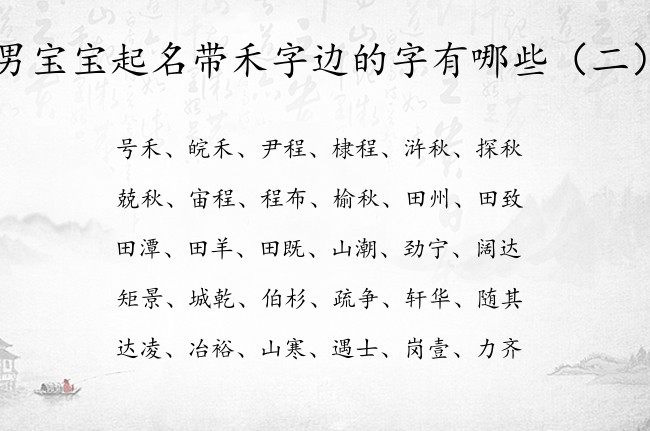 男宝宝起名带禾字边的字有哪些（二）
号禾、皖禾、尹程、棣程、浒秋、探秋
兢秋、宙程、程布、榆秋、田州、田致
田潭、田羊、田既、山潮、劲宁、阔达
矩景、城乾、伯杉、疏争、轩华、随其
达凌、冶裕、山寒、遇士、岗壹、力齐